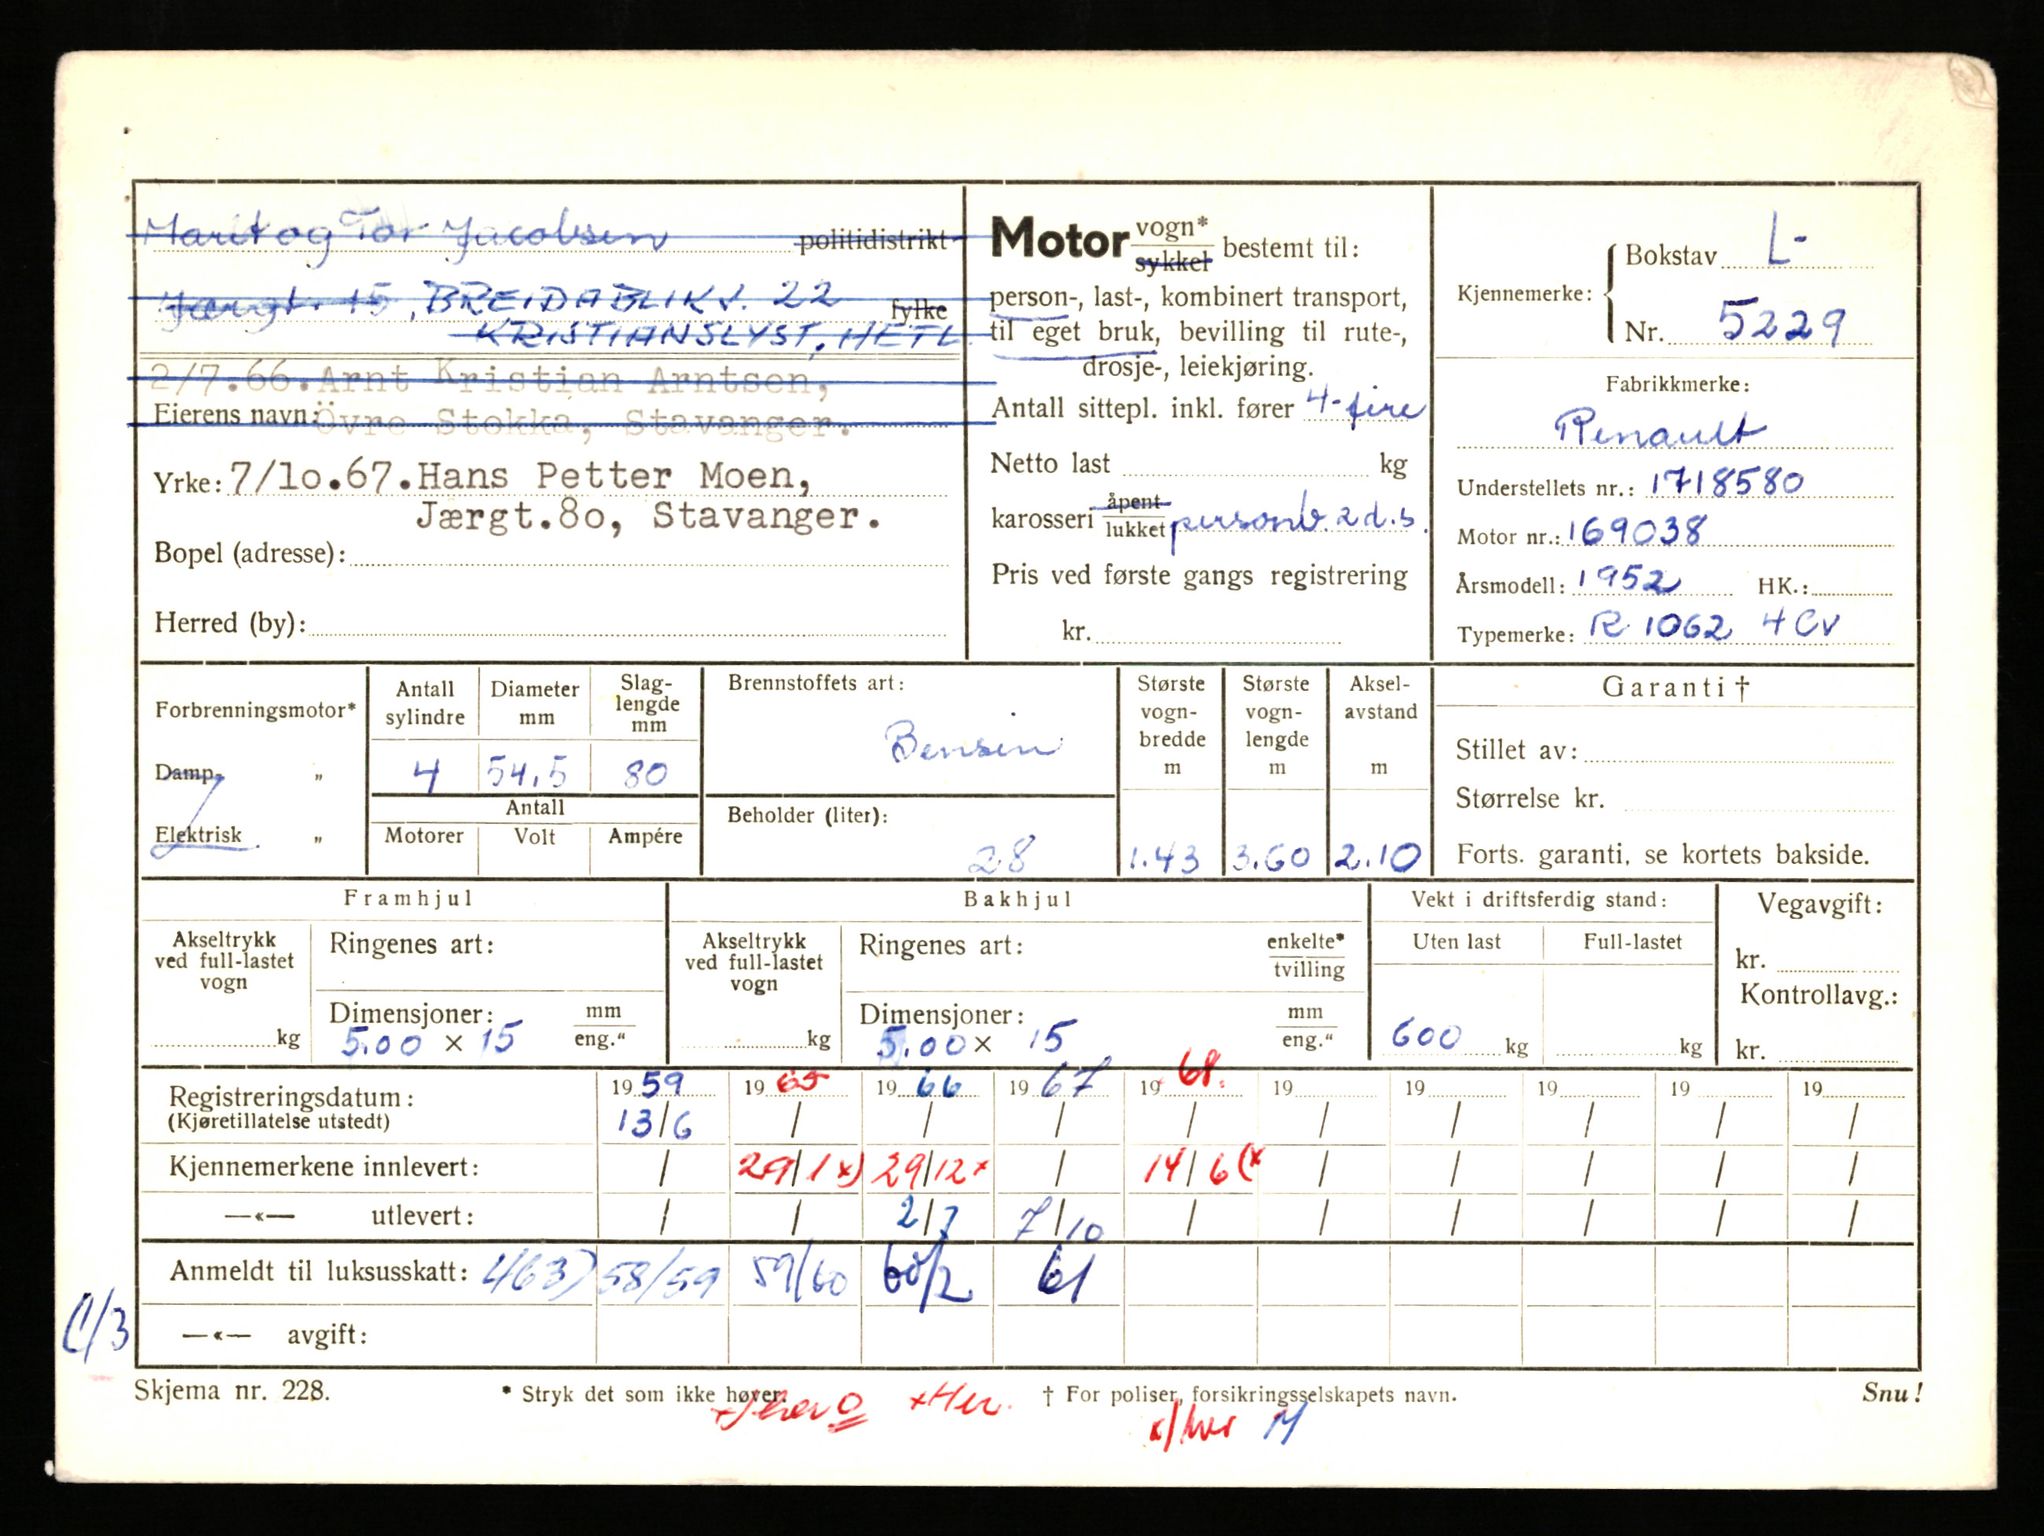 Marit og Tor Jacobsen politidistrikt
Jærgt. 15, BREIDABLIKV. 22 fylke
KRISTIANSLYST, HETL
2/7.66. Arnt Kristian Arntsen,
Eierens navn: Övre Stokka, Stavanger.
Yrke: 7/1o.67. Hans Petter Moen,
Jærgt.8o, Stavanger.
Bopel (adresse):
Herred (by):
Motor vogn* sykkel bestemt til:
person-, last-, kombinert transport,
til eget bruk, bevilling til rute-,
drosje-, leiekjøring.
Antall sittepl. inkl. fører 4-fire
Netto last kg
karosseri åpent lukket personb. 2 d.s.
Pris ved første gangs registrering
kr.
Kjennemerke: Bokstav L-
Nr. 5229
Fabrikkmerke:
Renault
Understellets nr.: 1718580
Motor nr.: 169038
Årsmodell: 1952 HK.:
Typemerke: R 1062 4 CV
Forbrenningsmotor*
Damp- „
Elektrisk „
Antall sylindre Diameter mm Slag-lengde mm
4 54,5 80
Antall
Motorer Volt Ampére
Brennstoffets art:
Bensin
Beholder (liter):
28
Største vogn-bredde m Største vogn-lengde m Aksel-avstand m
1.43 3.60 2.10
Garanti †
Stillet av:
Størrelse kr.
Forts. garanti, se kortets bakside.
Framhjul
Akseltrykk ved full-lastet vogn
kg
Ringenes art:
Dimensjoner: mm eng."
5.00 x 15
Bakhjul
Akseltrykk ved full-lastet vogn
kg
Ringenes art: enkelte* tvilling
Dimensjoner: mm eng."
5.00 x 15
Vekt i driftsferdig stand:
Uten last Full-lastet
600 kg kg
Vegavgift:
kr.
Kontrollavg.:
kr.
Registreringsdatum: 1959 1965 1966 1967 1968. 19 19 19 19 19
(Kjøretillatelse utstedt) 13/6 / / / / / / / / /
Kjennemerkene innlevert: / 29/1 x) 29/12 x / 14/6 (x / / / / /
—«— utlevert: / / 2/7 7/10 / / / / / /
Anmeldt til luksusskatt: 4(63) 58/59 59/60 60/2 61
—«— avgift:
Skjema nr. 228. * Stryk det som ikke høver. † For poliser, forsikringsselskapets navn. Snu!